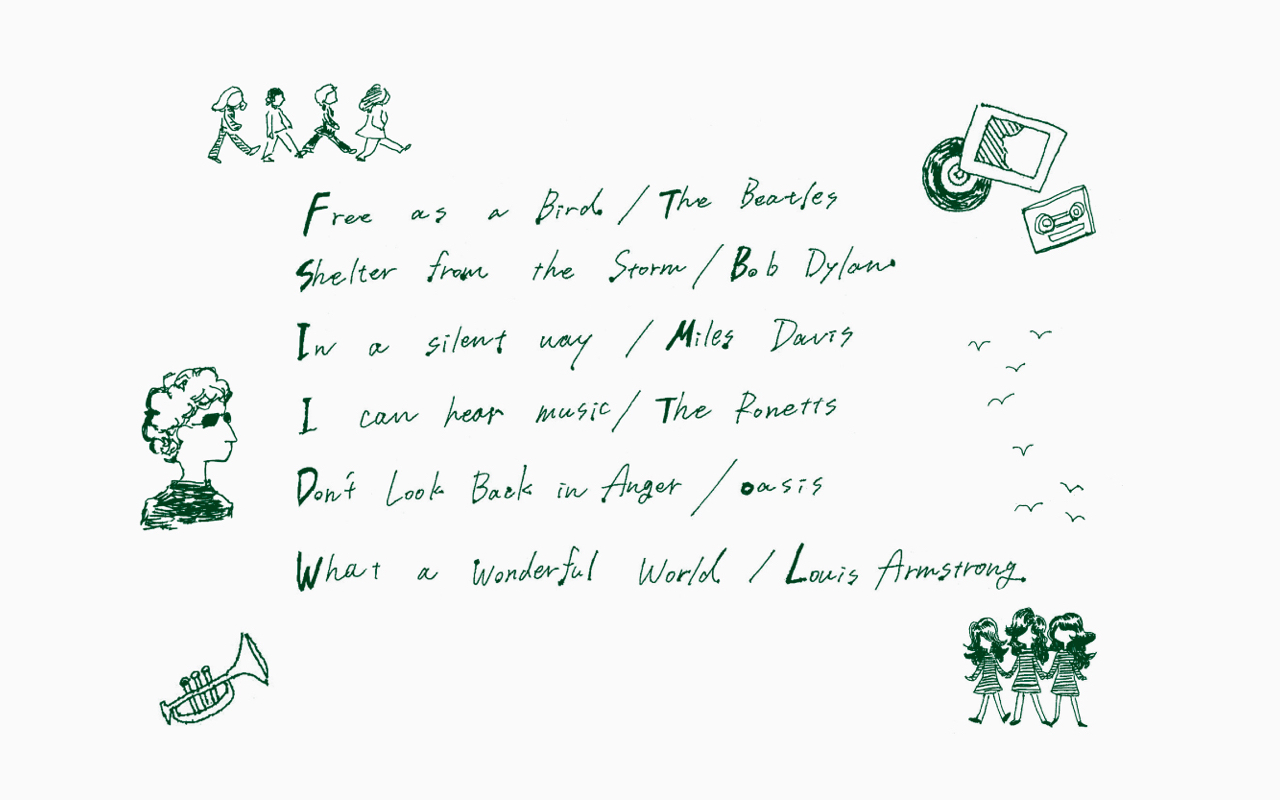 Free as a Bird / The Beatles
Shelter from the Storm / Bob Dylan
In a silent way / Miles Davis
I can hear music / The Ronetts
Don't Look Back in Anger / oasis
What a Wonderful World / Louis Armstrong